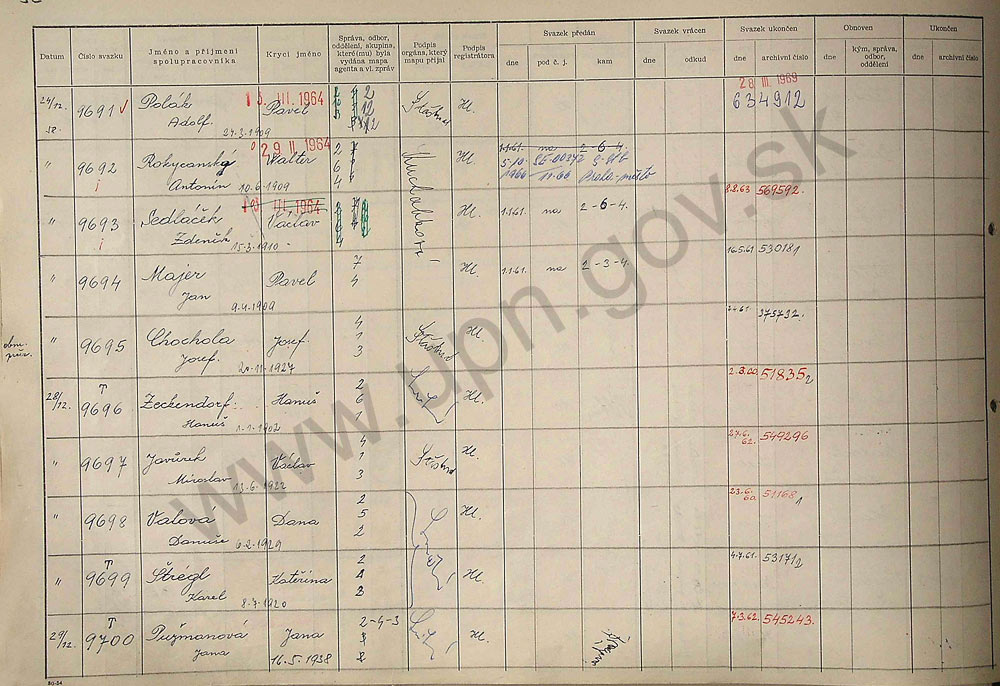 Datum
Číslo svazku
Jméno a příjmení spolupracovníka
Krycí jméno
Správa, odbor, oddělení, skupina, které(mu) byla vydána mapa agenta a vl. zpráv
Podpis orgánu, který mapu přijal
Podpis registrátora
Svazek předán
dne pod č. j. kam
Svazek vrácen
dne odkud
Svazek ukončen
dne archivní číslo
Obnoven
dne kým, správa, odbor, oddělení
Ukončen
dne archivní číslo
28 III. 1969
24/12. 9691 Polák 1 3. III. 1964 Pavel Šťastná Hl. 634912
58. Adolf. 24-3-1909
" 9692 Rokycanský 29 II 1964 Walter 2 7 6 4 Hl. 1.1.61. na 2-6-4.
Antonín 10-6-1909 5-10- 1966
" 9693 Sedláček III 1964 Václav Hl. 1.1.61. na 2-6-4. 8.2.63 569592.
Zdeněk 15-3-1910
" 9694 Majer Pavel 7 4 Hl. 1.1.61. na 2-3-4. 16.5.61 530181
Jan 9-4-1909
" 9695 Chochola Josef. 4 1 3 Šťastná Hl. 375732.
Josef. 20-11-1927
28/12. 9696 Zeckendorf. Hanuš 2 6 1 Hl. 2.3.60. 51835/2
Hanuš 1-1-1902
" 9697 Javůrek Václav 4 1 3 Šťastná Hl. 27.6. 62. 549296
Miroslav 13-6-1922
" 9698 Valová Dana 2 5 2 Hl. 23.6. 60 51168/1
Danuše 6-2-1929
" 9699 Štrégl Kateřina Hl. 4.7.61. 53171/2
Karel 8-7-1920
29/12. 9700 Pužmanová Jana 2-4-3 Hl. 7.3.62. 545243.
Jana 16.5.1938
SG-54
www.upn.gov.sk